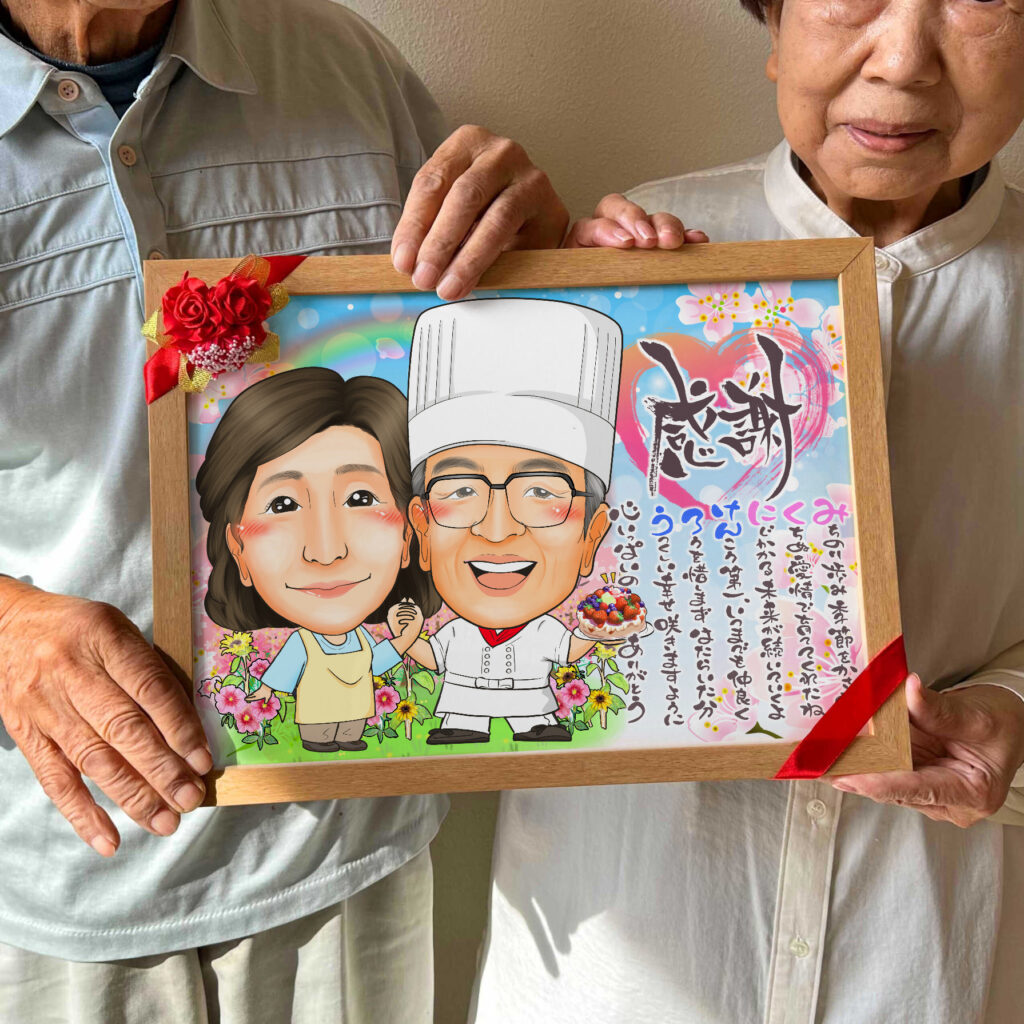 感謝
みちのり歩み 季節をかさ
くちぬ愛情で育ててくれたね
にじかかる 未来が続いていくよ
けんこう第一 いつまでも仲良く
ろうを惜しまず はたらいた分
うつくしい幸せ 咲きますように
心いっぱいの ありがとう